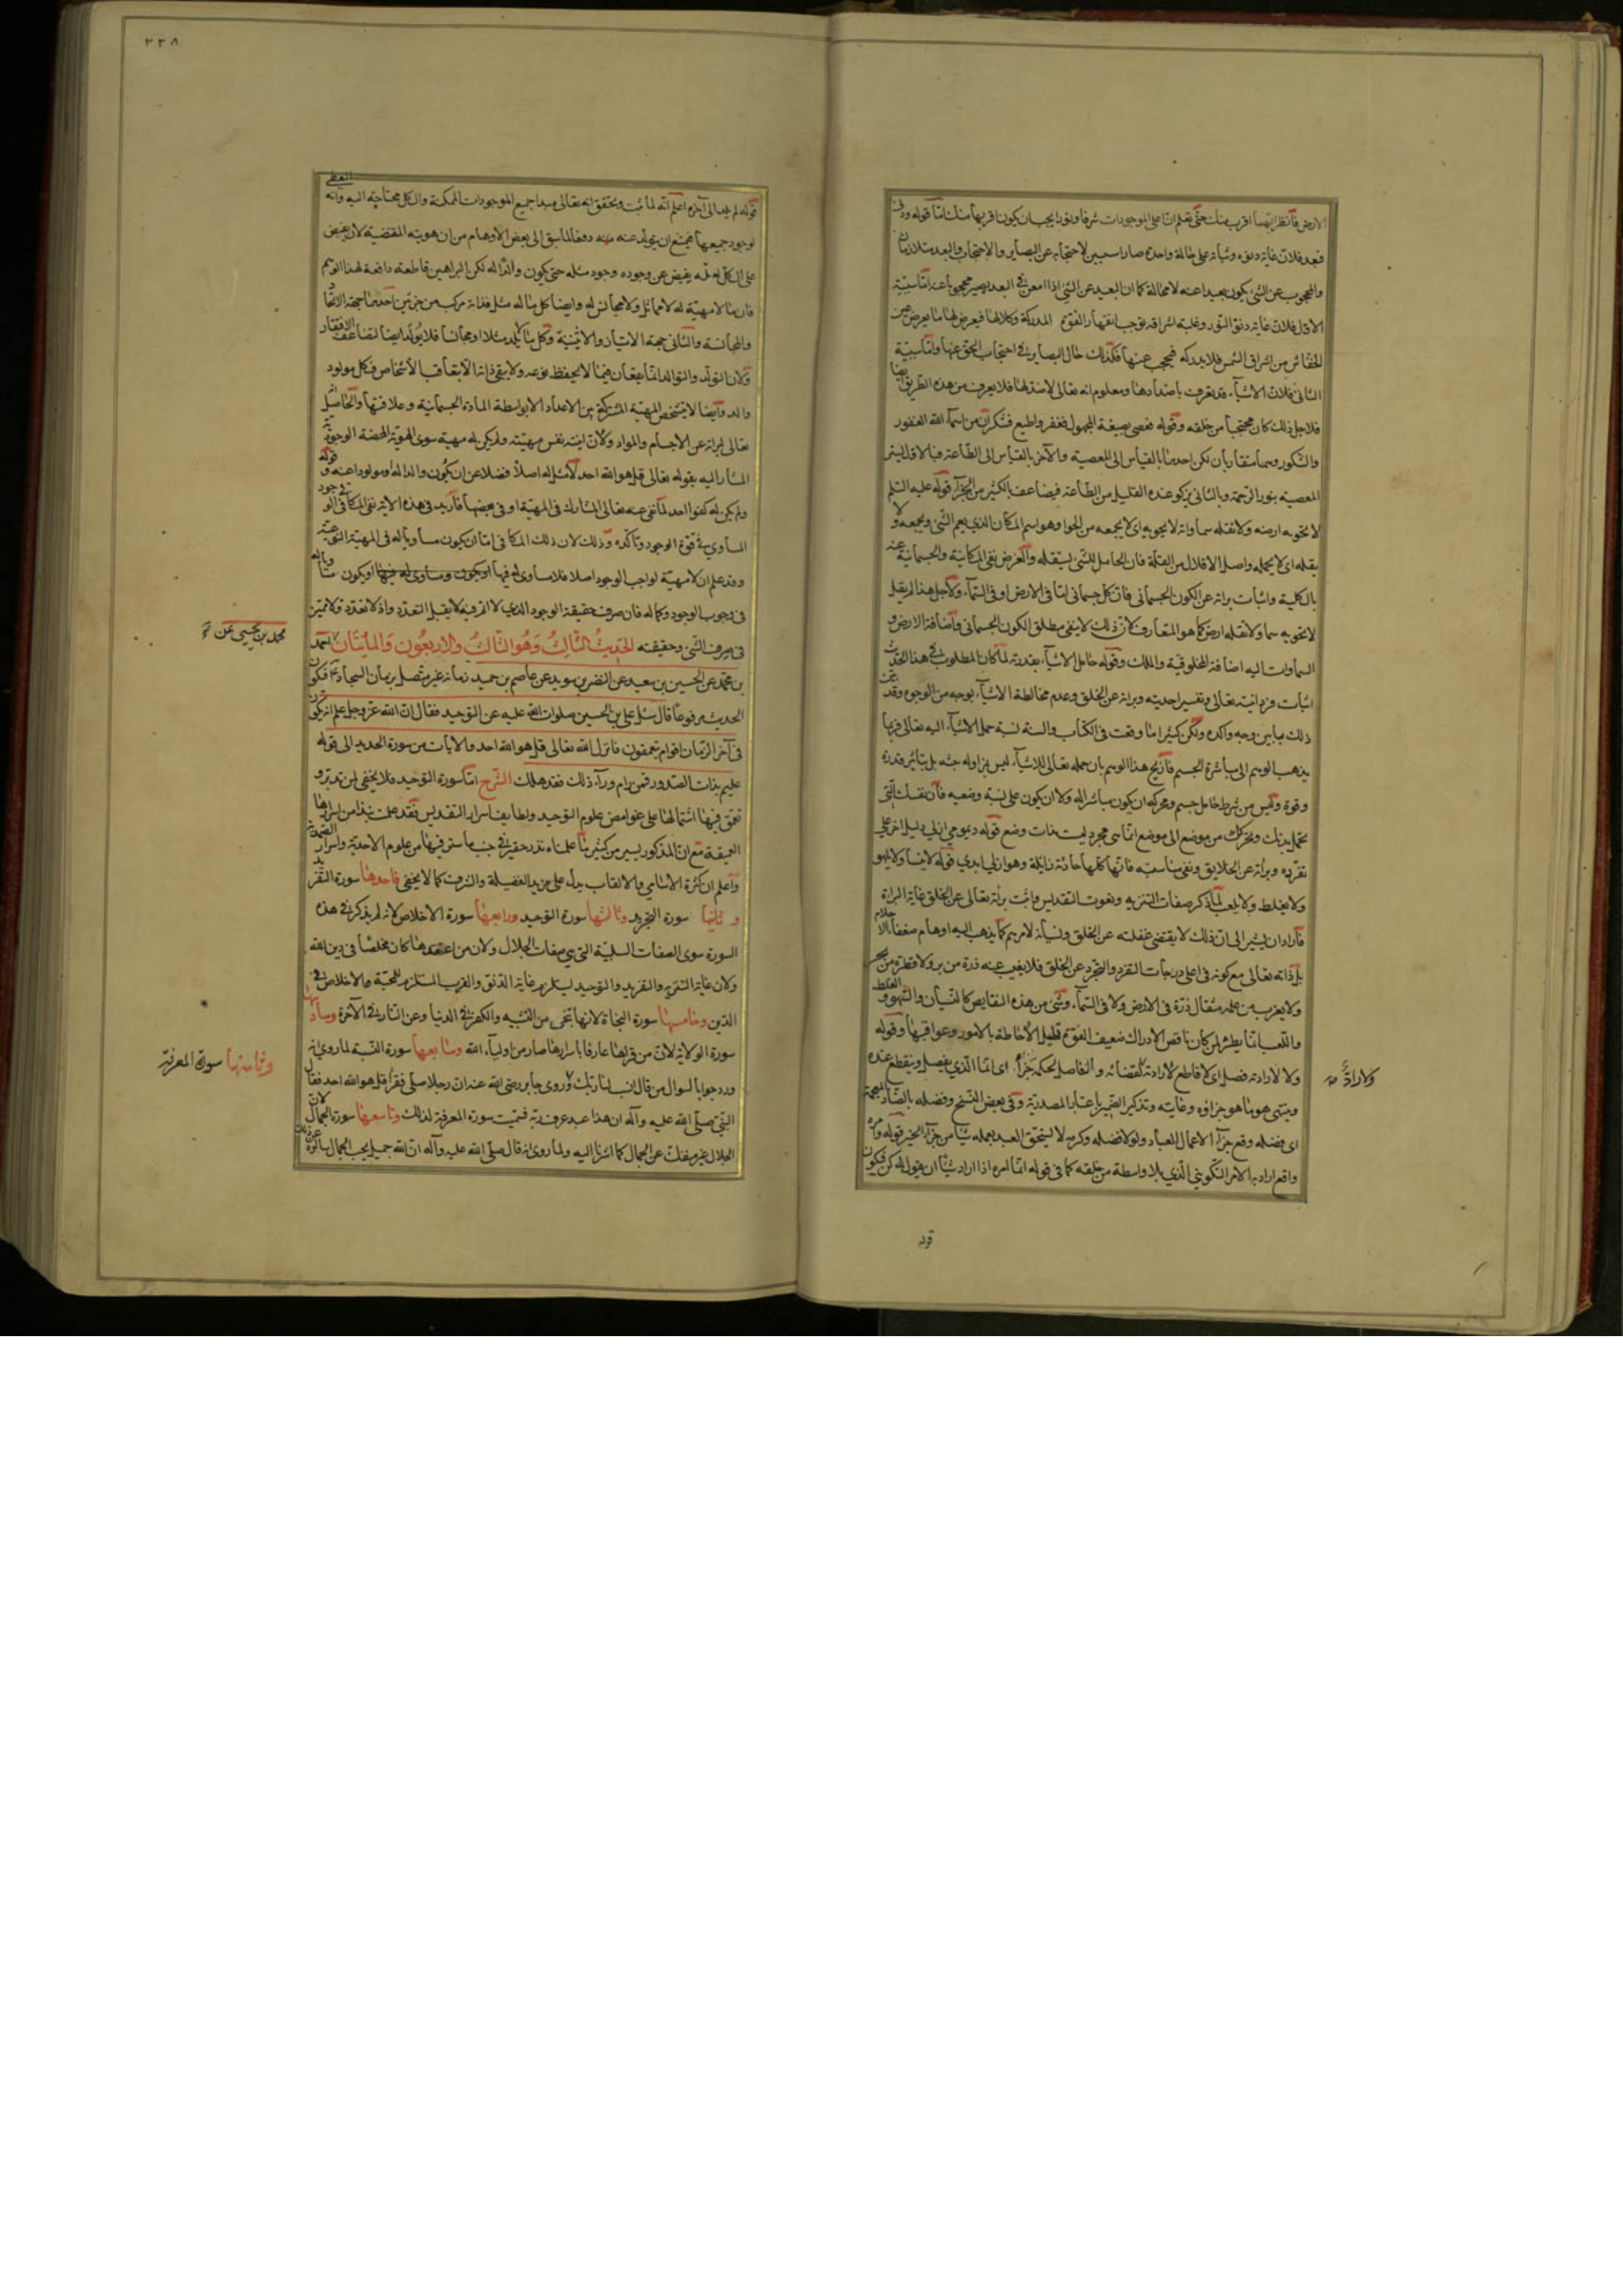 الارض فانظر ايهما اقرب منك حتى يعلم ان اعلى الموجودات شرفا ونورا يجب ان يكون اقربها منك اما قوله ودنى
فبعد فلان غاية دنوه ونباته على حالة واحدة صارا سببين لاحتجابه عن البصاير والاحتجاب والبعد متلازمان
والمحجوب عن الشئ يكون بعيدا عنه لا محالة كما ان البعيد عن الشئ اذا امعن في البعد يصير محجوبا عنه اما سببية
الاول فلان غاية دنو النور وغلبة اشراقه يوجب انقهار القوة المدركة وكلالها فيعرض لها ما يعرض لعين
الخفاش من اشراق الشمس فلا يدركه فيحجب عنها فكذلك حال البصاير في احتجاب الحق عنها واما سببية
الثاني فلان الاشياء قد يعرف باضدادها ومعلوم انه تعالى لا ضد لها فلا يعرف من هذه الطريق ايضا
فلاجل ذلك كان محتجبا من خلقه وقوله فعصي بصيغة المجهول فغفر واطيع فشكر ان من اسماء الله الغفور
والشكور وهما متقاربان لكن احدهما بالقياس الى المعصية والآخر بالقياس الى الطاعة فبالاول يستر
المعصية بنور الرحمة وبالثاني يزكو عنده القليل من الطاعة فيضاعف بالكثير من الجزاء قوله عليه السلم
لا تحويه ارضه ولا تقله سماواته لا يحويه اي لا يجمعه من الحوا وهو اسم المكان الذي يعم الشئ ويجمعه ولا
يقله اي لا يحمله واصل الاقلال من القلة فان الحامل للشئ يستقله والغرض نفي المكانية والجسمانية عنه
بالكلية واثبات برائه عن الكون الجسماني فان كل جسماني اما في الارض او في السماء ولاجل هذا لم يقل
لا تحويه سما ولا تقله ارض كما هو المتعارف لان ذلك لا ينفي مطلق الكون الجسماني واضافة الارض و
السماوات اليه اضافة المخلوقية والملك وقوله حامل الاشياء بقدرته لما كان المطلوب في هذا الحديث
اثبات فردانيته تعالى وتفسير احديته وبرائه عن الخلق وعدم مخالطة الاشياء بوجه من الوجوه وقد بين
ذلك بابين وجه واكده ولكن كثيرا ما وقعت في الكتاب والسنة نسبة حمل الاشياء اليه تعالى فربما
يذهب الوهم الى مباشرة الجسم فازيح هذا الوهم بان حمله تعالى للاشياء ليس بمزاولة جثه بل بتاثير قدرة
وقوة وليس من شرط حامل جسم ومحركه ان يكون مباشرا له ولا ان يكون على نسبة وضعية فان نفسك التي
تحمل بدنك وتحركك من موضع الى موضع انما هي مجرد ليست بذات وضع قوله ديمومي ازلي دليل اخر على
تفرده وبرائه عن الخلايق ونفي مناسبته فانها كلها حادثة زايلة وهو ازلي ابدي قوله لا ينسا ولا يلهو
ولا يغلط ولا يلعب لما ذكر صفات التنزيه ونعوت التقديس واثبت براته تعالى عن الخلق غاية البراة
فاراد ان يشير الى ان ذلك لا يقتضي غفلته عن الخلق ونسيانه لامرهم كما يذهب اليه اوهام ضعفاء الاحلام
بل ذاته تعالى مع كونه في اعلى درجات التفرد والتجرد عن الخلق فلا يغيب عنه ذرة من بر ولا قطرة من بحر
ولا يعزب عن علمه مثقال ذرة في الارض ولا في السماء وشئ من هذه النقايص كالنسيان والسهو والغلط
واللعب انما يطرء لمن كان ناقص الادراك ضعيف القوة قليل الاحاطة بالامور وعواقبها وقوله
ولا لارادته فصل اي لا قاطع لارادته لقضائه والفاصل لحكمه جزاء اي انما الذي يفصل وينقطع عنده
وينتهي هو ما هو جزاؤه وغايته وتذكير الضمير باعتبار المصدرية وفي بعض النسخ وفضله بالضاد المعجمة
اي فضله وقع جزاء الاعمال للعباد ولولا فضله وكرمه لا يستحق العبد بعمله شيئا من جزاء الخير قوله وامره
واقع اراد به الامر التكويني الذي بلا واسطة من خلقه كما في قوله انما امره اذا اراد شيئا ان يقول له كن فيكون
ولا رادّ صه
قوله
٢٢٨
قوله لم يلد الى آخره اعلم انه لما ثبت وتحقق انه تعالى مبدا جميع الموجودات الممكنة والكل محتاجة اليه وانه المعطي
لوجود جميعها فيمتنع ان يتولد عنه مثله دفعا لما سبق الى بعض الاوهام من ان هويته المقتضية لان يفيض
على الكل لعله يفيض عن وجوده وجود مثله حتى يكون والدا له لكن البراهين قاطعة دافعة لهذا الوهم
فان ما لا مهية له لا مماثل ولا مجانس له وايضا كل ما له مثل فذاته مركب من جزئين احدهما جهة الاتحاد
والمجانسة والثاني جهة الامتياز والاثنينية وكل ما يلد مثلا او مجانسا فلا يولد ايضا لتضاعف الافتقار
ولان التولد والتوالد انما يقعان فيما لا يحفظ نوعه ولا يبقى ذاته الا بتعاقب الاشخاص فكل مولود
والد وايضا لا يتشخص المهية المشتركة بين الاعداد الا بواسطة المادة الجسمانية وعلاقتها والحاصل انه
تعالى لبرائه عن الاجسام والمواد ولان انيته نفس مهيته ولم يكن له مهية سوى الهوية المحضة الوجودية
المشار اليه بقوله تعالى قل هو الله احد لا مثل له اصلا فضلا عن ان يكون والدا له او مولودا عنه وقوله
ولم يكن له كفوا احد لما نفي عنه تعالى المشارك في المهية او في بعضها فاريد في هذه الاية نفي المكافي الوجود
المساوي في قوة الوجود وتاكده وذلك لان ذلك المكافي اما ان يكون مساويا له في المهية النوعية
وقد علم ان لا مهية لواجب الوجود اصلا فلا مساوي له فيها او يكون مساويا له
في وجوب الوجود وكماله فان صرف حقيقة الوجود الذي لا اتم منه لا يقبل التعدد واذ لا تعدد ولا تميز
في صرف الشئ وحقيقته الحديث الثالث وهو الثالث والاربعون والمايتان احمد
بن محمد عن الحسين بن سعيد عن النضر بن سويد عن عاصم بن حميد زمانه غير متصل بزمان السجاد ع فيكون
الحديث مرفوعا قال سئل علي بن الحسين صلوات الله عليه عن التوحيد فقال ان الله عز وجل علم انه يكون
في آخر الزمان اقوام متعمقون فانزل الله تعالى قل هو الله احد والايات من سورة الحديد الى قوله
عليم بذات الصدور فمن رام وراء ذلك فقد هلك الشرح اما سورة التوحيد فلا يخفى لمن تدبر و
تعمق فيها اشتمالها على غوامض علوم التوحيد ولطايف اسرار التقديس فقد علمت نبذا من اسرارها
العميقة مع ان المذكور يسير من كثير ما علمناه نذر حقير في جنب ما ستر فيها من علوم الاحدية واسرار الصمدية
واعلم ان كثرة الاسامي والالقاب يدل على مزيد الفضيلة والشرف كما لا يخفى فاحدها سورة التفريد
و ثانيها سورة التجريد وثالثها سورة التوحيد ورابعها سورة الاخلاص لانه لم يذكر في هذه
السورة سوى الصفات السلبية التي هي صفات الجلال ولان من اعتقدها كان مخلصا في دين الله
ولان غاية التنزيه والتفريد والتوحيد يستلزم غاية الدنو والقرب المستلزم للمحبة والاخلاص في
الدين وخامسها سورة النجاة لانها تنجي من التشبيه والكفر في الدنيا وعن النار في الآخرة وسادسها
سورة الولاية لان من قراها عارفا باسرارها صار من اولياء الله وسابعها سورة النسبة لما روي انه
ورد جوابا لسوال من قال انسب لنا ربك وروي جابر رضي الله عنه ان رجلا صلى فقرأ قل هو الله احد فقال
النبي صلى الله عليه وآله ان هذا عبد عرف ربه فسميت سورة المعرفة لذلك وتاسعها سورة الجمال لان
الجلال غير منفك عن الجمال كما اشرنا اليه ولما روي انه قال صلى الله عليه وآله ان الله جميل يحب الجمال
محمد بن يحيى عن
وثامنها سورة المعرفة